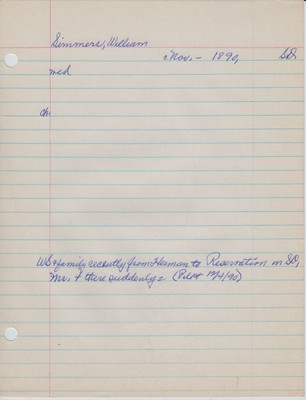 Simmers, William
Nov. - 1890, SD,
med
ch
WS & family recently from Herman to Reservation in SD,
Mr. + there suddenly = (Pilot 12/4/90)